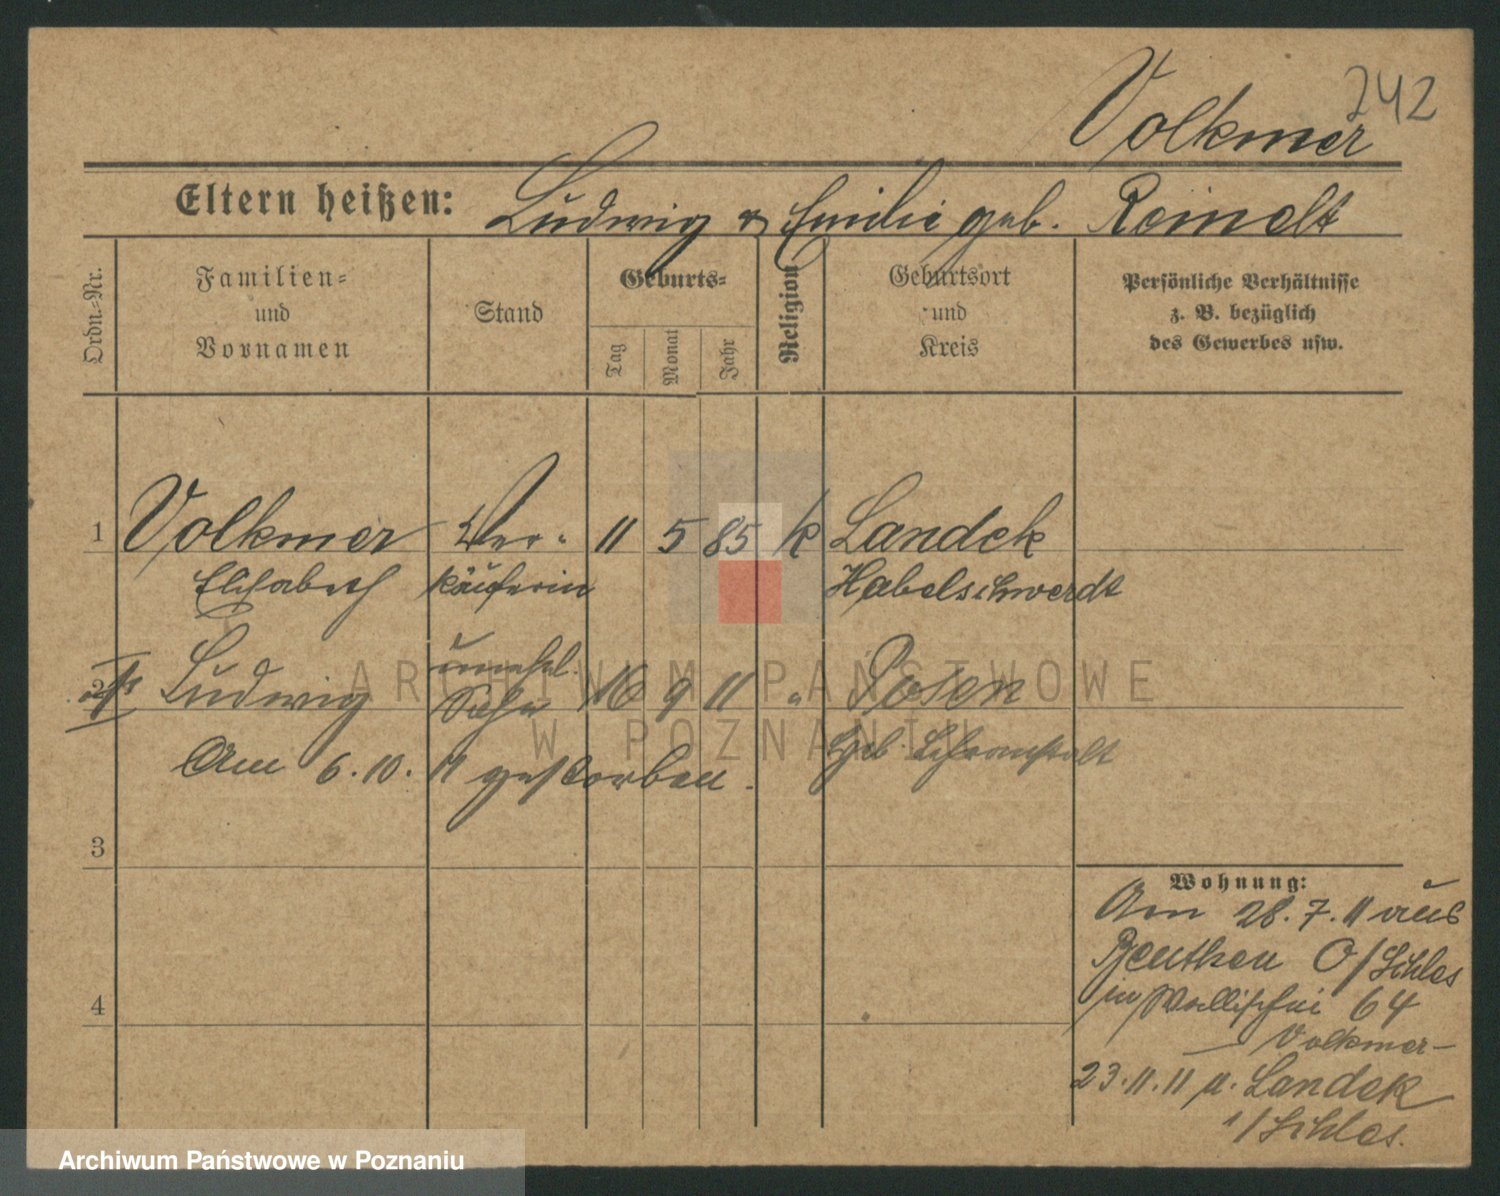 242
Volkmer
Eltern heißen: Ludwig & Emilie geb. Reinelt
Ordn.-Nr.
Familien-
und
Vornamen
Stand
Geburts-
Tag
Monat
Jahr
Religion
Geburtsort
und
Kreis
Persönliche Verhältnisse
z. B. bezüglich
des Gewerbes usw.
1 Volkmer Ver- 11 5 85 k Landek
Elisabeth käuferin Habelschwerdt
2 Ludwig unehel. Sohn 16 9 11 " Posen
Am 6.10. 11 gestorben. Geb.
3
4
Wohnung:
Am 28.7.11 aus
Beuthen O/Schles
in Wallischei 64
Volkmer-
23.11.11 n. Landek
i/Schles.
ARCHIWUM PAŃSTWOWE
W POZNANIU
Archiwum Państwowe w Poznaniu